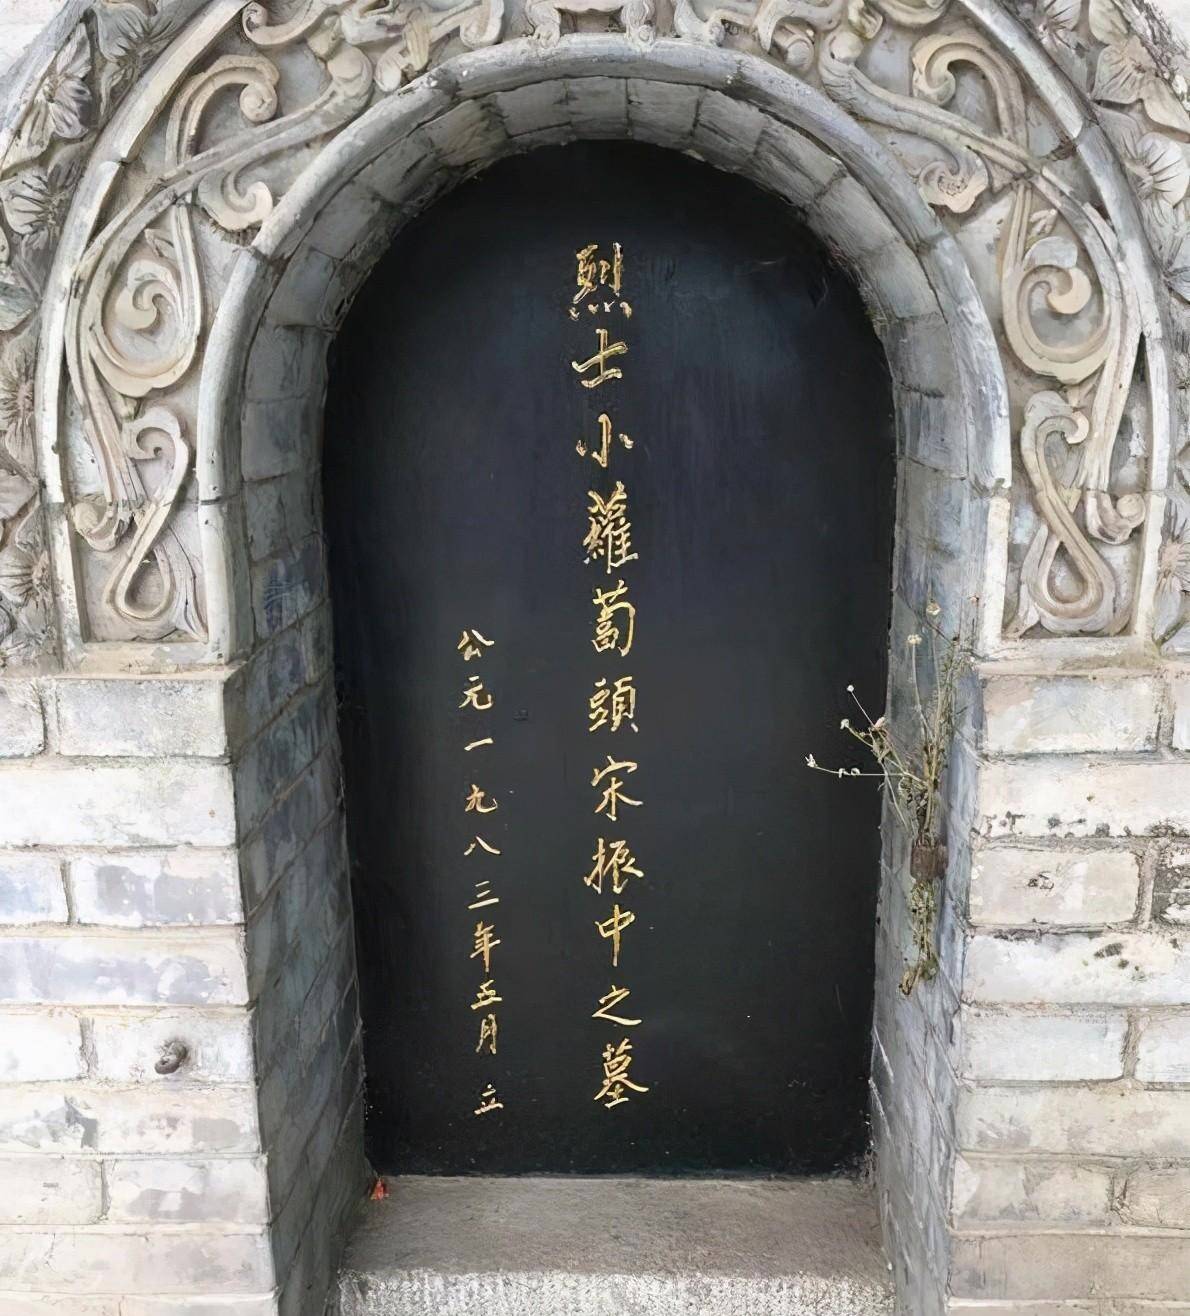 烈士小蘿蔔頭宋振中之墓
公元一九八三年五月 立